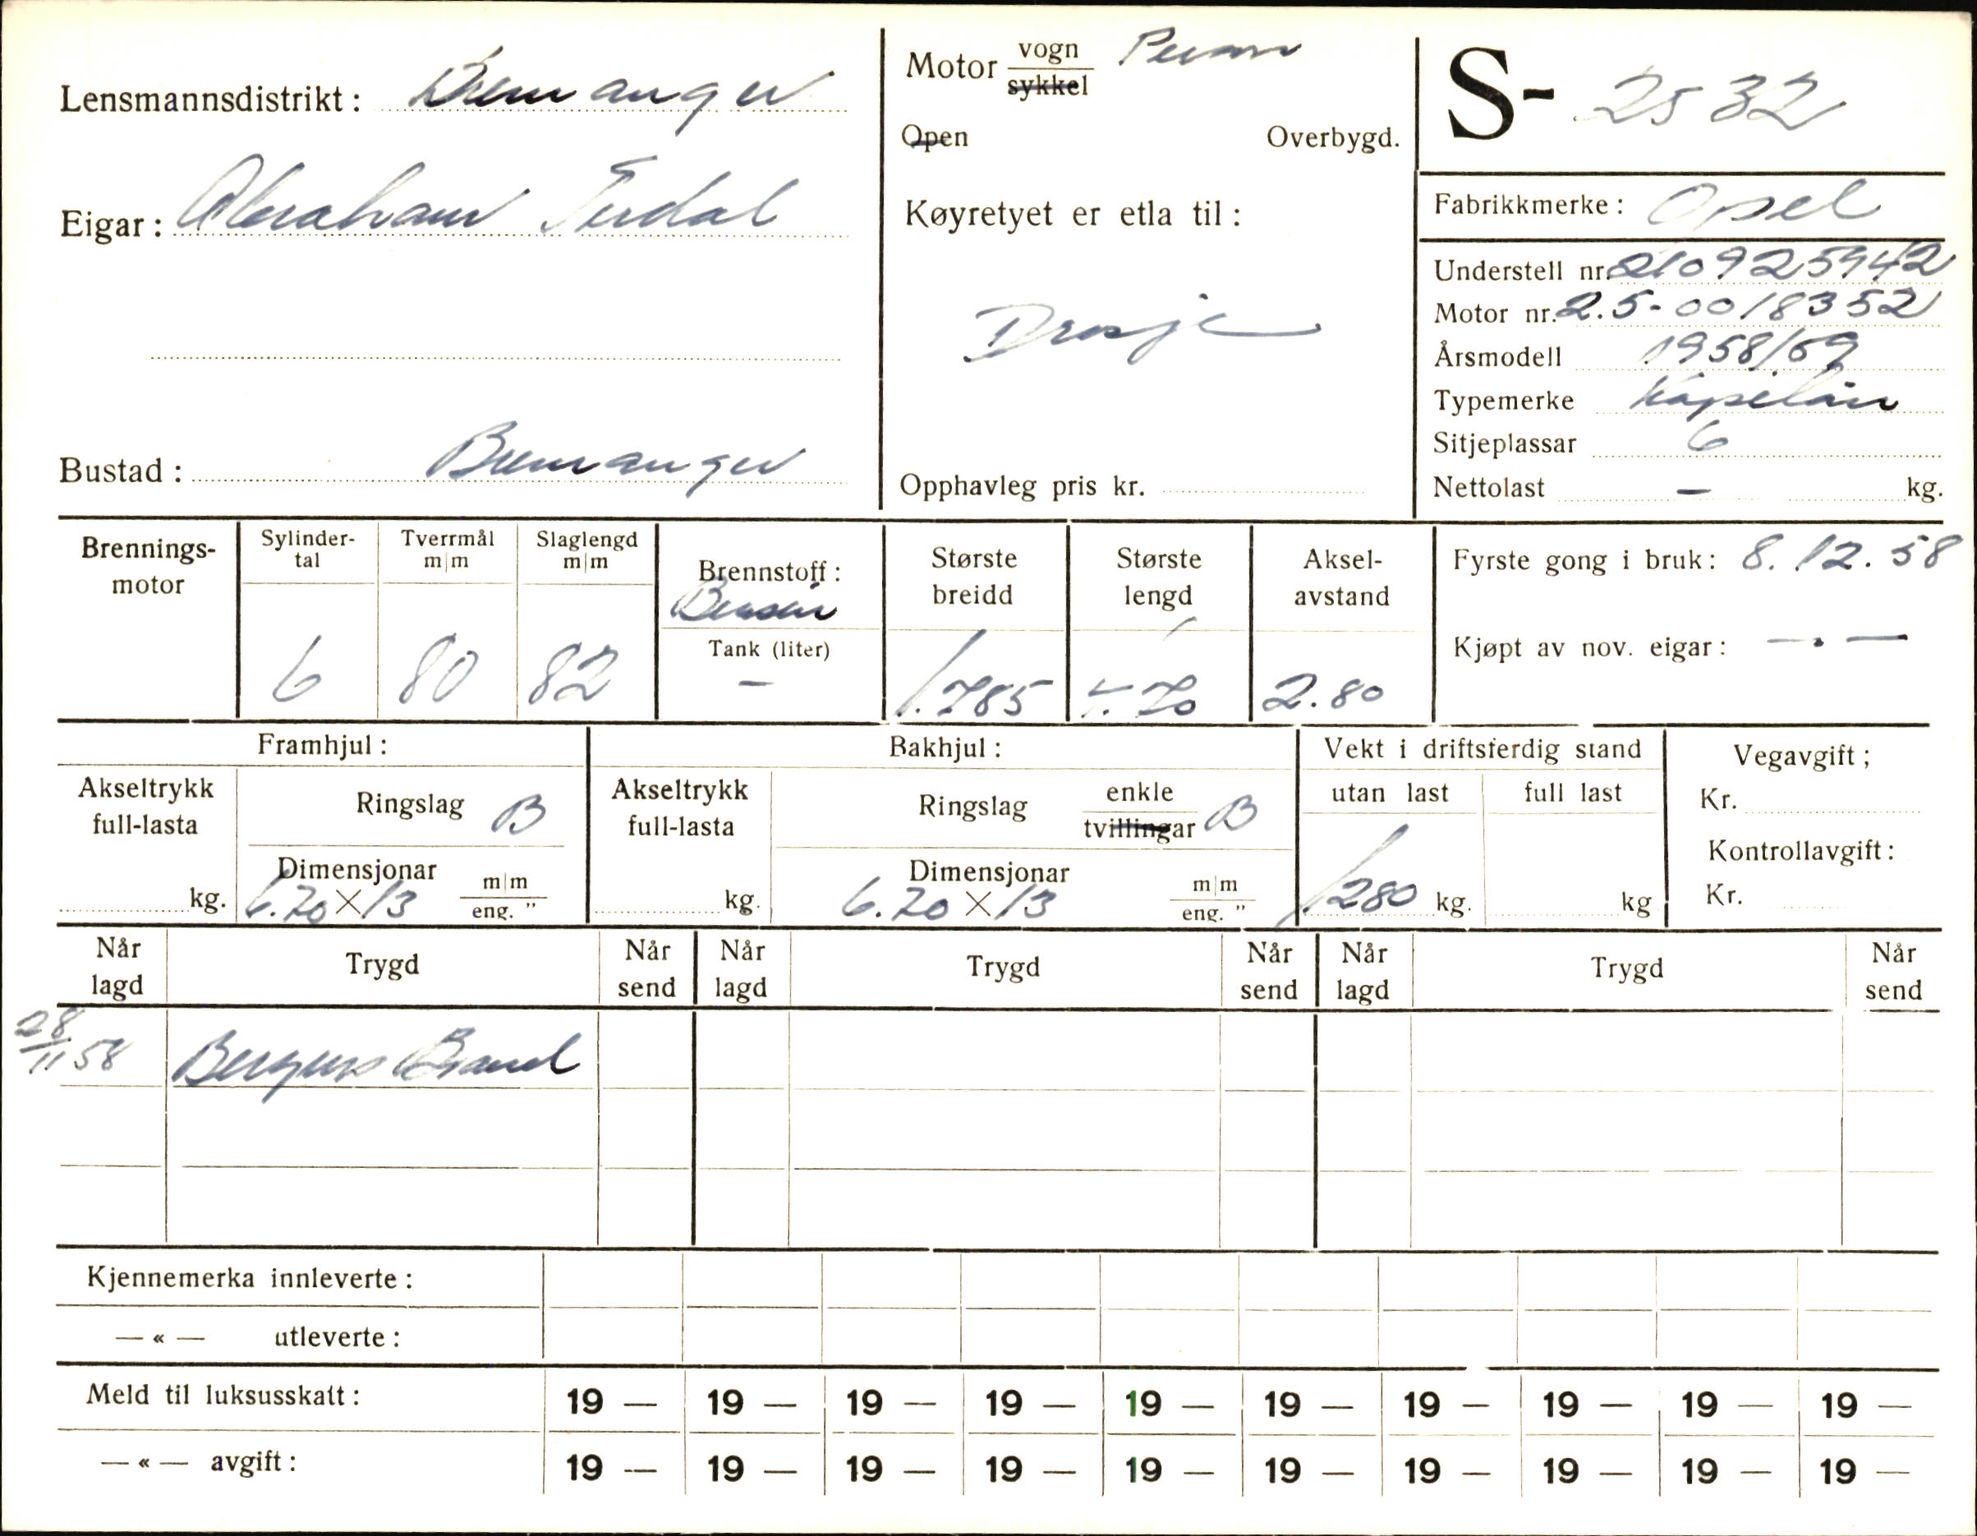 Lensmannsdistrikt: Bremanger
Eigar: Abraham Terdal
Bustad: Bremanger
Motor vogn Person
sykkel
Open Overbygd.
Køyretyet er etla til:
Drosje
Opphavleg pris kr.
S- 2532
Fabrikkmerke: Opel
Understell nr. 210925942
Motor nr. 2.5-0018352
Årsmodell 1958/59
Typemerke Kapitän
Sitjeplassar 6
Nettolast — kg.
Brennings-
motor
Sylinder-
tal
6
Tverrmål
m|m
80
Slaglengd
m|m
82
Brennstoff:
Bensin
Tank (liter)
—
Største
breidd
1.785
Største
lengd
4.70
Aksel-
avstand
2.80
Fyrste gong i bruk: 8.12.58
Kjøpt av nov. eigar: —.—
Framhjul:
Akseltrykk
full-lasta
kg.
Ringslag B
Dimensjonar
6.70 X 13 m|m
eng. "
Bakhjul:
Akseltrykk
full-lasta
kg.
Ringslag enkle
tvillingar B
Dimensjonar
6.70 X 13 m|m
eng. "
Vekt i driftsferdig stand
utan last full last
1280 kg. kg
Vegavgift;
Kr.
Kontrollavgift:
Kr.
Når
lagd Trygd Når
send Når
lagd Trygd Når
send Når
lagd Trygd Når
send
28/11 58 Bergens Brand
Kjennemerka innleverte:
— « — utleverte:
Meld til luksusskatt: 19 — 19 — 19 — 19 — 19 — 19 — 19 — 19 — 19 — 19 —
— « — avgift: 19 — 19 — 19 — 19 — 19 — 19 — 19 — 19 — 19 — 19 —